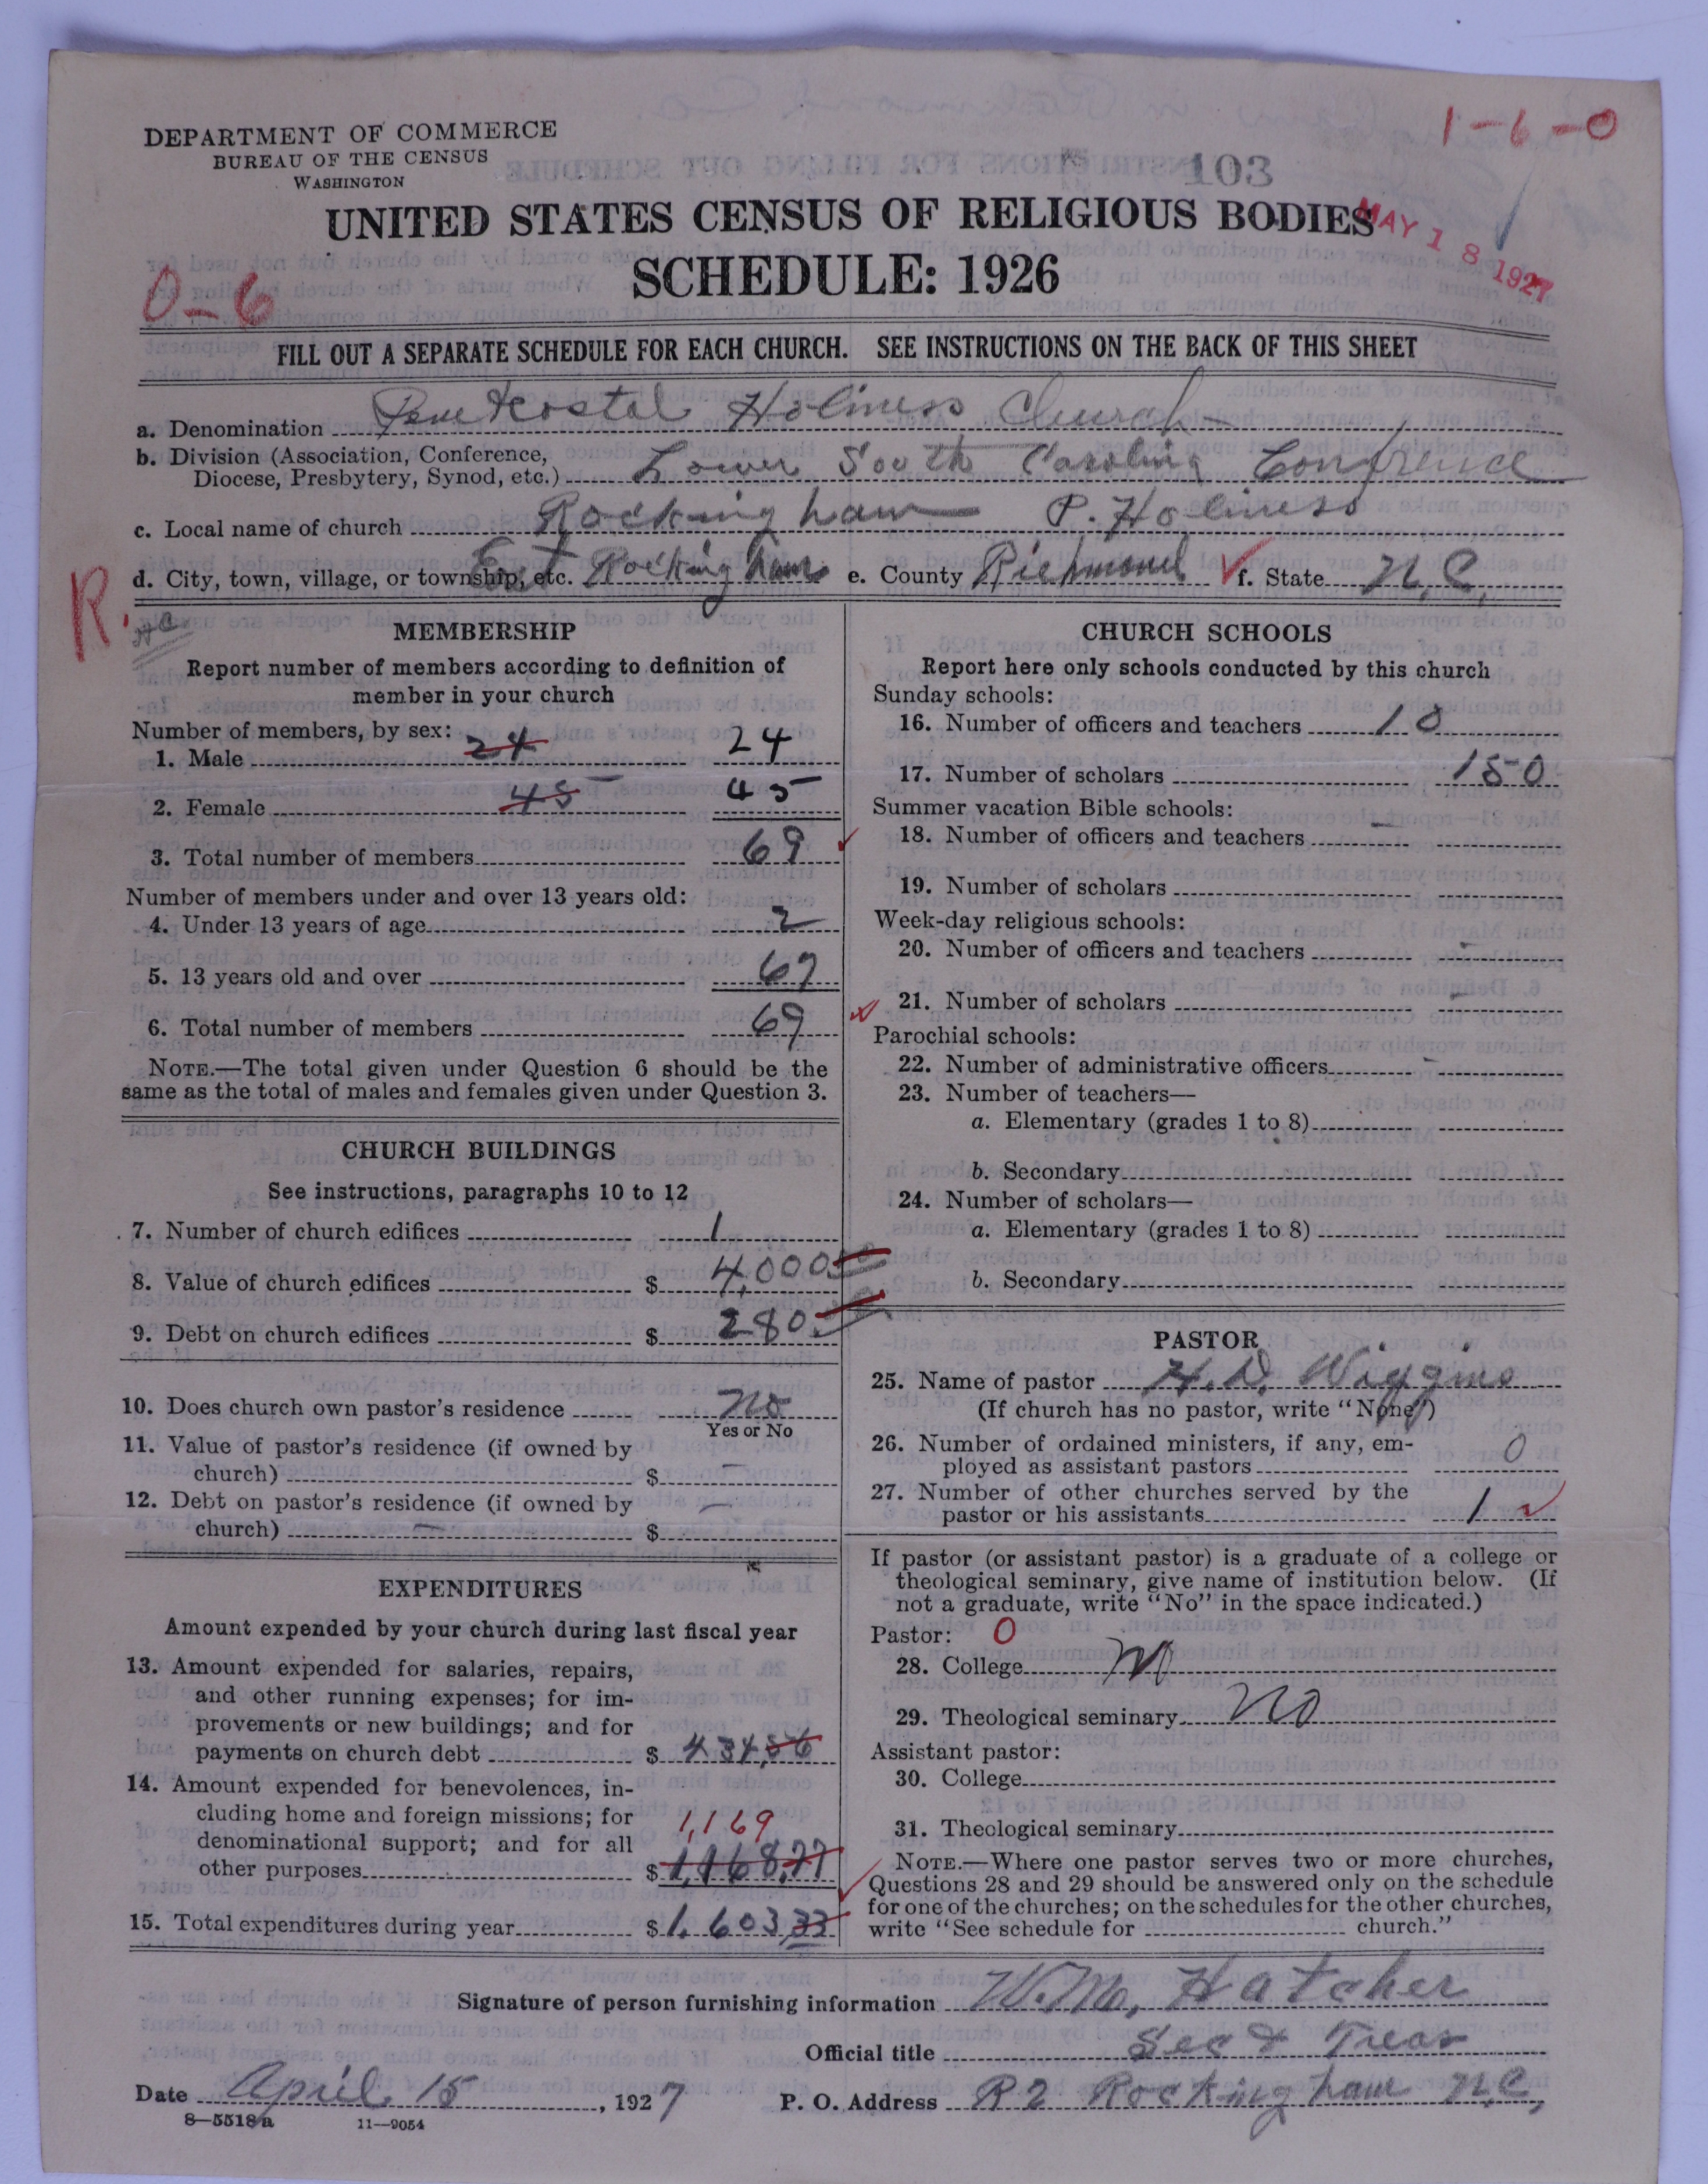 1-6-0
DEPARTMENT OF COMMERCE
BUREAU OF THE CENSUS
WASHINGTON
103
UNITED STATES CENSUS OF RELIGIOUS BODIES
MAY 18 1927
SCHEDULE: 1926
0-6
FILL OUT A SEPARATE SCHEDULE FOR EACH CHURCH. SEE INSTRUCTIONS ON THE BACK OF THIS SHEET
a. Denomination Pentecostal Holiness Church
b. Division (Association, Conference,
Diocese, Presbytery, Synod, etc.) Lower South Carolina Confrence
c. Local name of church Rockingham P. Holiness
d. City, town, village, or township, etc. East Rockingham e. County Richmond f. State N.C.
R.
MEMBERSHIP
Report number of members according to definition of
member in your church
Number of members, by sex:
1. Male 24 24
2. Female 45 45
3. Total number of members 69
Number of members under and over 13 years old:
4. Under 13 years of age 2
5. 13 years old and over 67
6. Total number of members 69
NOTE.—The total given under Question 6 should be the
same as the total of males and females given under Question 3.
CHURCH BUILDINGS
See instructions, paragraphs 10 to 12
7. Number of church edifices 1
8. Value of church edifices $ 4,000
9. Debt on church edifices $ 280
10. Does church own pastor's residence No
Yes or No
11. Value of pastor's residence (if owned by
church) $ -
12. Debt on pastor's residence (if owned by
church) $ -
EXPENDITURES
Amount expended by your church during last fiscal year
13. Amount expended for salaries, repairs,
and other running expenses; for im-
provements or new buildings; and for
payments on church debt $ 434,56
14. Amount expended for benevolences, in-
cluding home and foreign missions; for
denominational support; and for all
1,169
other purposes $ 1,168,77
15. Total expenditures during year $ 1,603,33
CHURCH SCHOOLS
Report here only schools conducted by this church
Sunday schools:
16. Number of officers and teachers 10
17. Number of scholars 150
Summer vacation Bible schools:
18. Number of officers and teachers -
19. Number of scholars
Week-day religious schools:
20. Number of officers and teachers -
21. Number of scholars -
Parochial schools:
22. Number of administrative officers -
23. Number of teachers—
a. Elementary (grades 1 to 8)
b. Secondary
24. Number of scholars—
a. Elementary (grades 1 to 8)
b. Secondary
PASTOR
25. Name of pastor H. D. Wiggins
(If church has no pastor, write "None")
26. Number of ordained ministers, if any, em-
ployed as assistant pastors 0
27. Number of other churches served by the
pastor or his assistants 1
If pastor (or assistant pastor) is a graduate of a college or
theological seminary, give name of institution below. (If
not a graduate, write "No" in the space indicated.)
Pastor: 0
28. College No
29. Theological seminary No
Assistant pastor:
30. College
31. Theological seminary
NOTE.—Where one pastor serves two or more churches,
Questions 28 and 29 should be answered only on the schedule
for one of the churches; on the schedules for the other churches,
write "See schedule for church."
Signature of person furnishing information W. M. Hatcher
Official title Sec & Treas
Date April 15, 1927 P. O. Address R2 Rockingham N.C.
8—5518a 11—9054